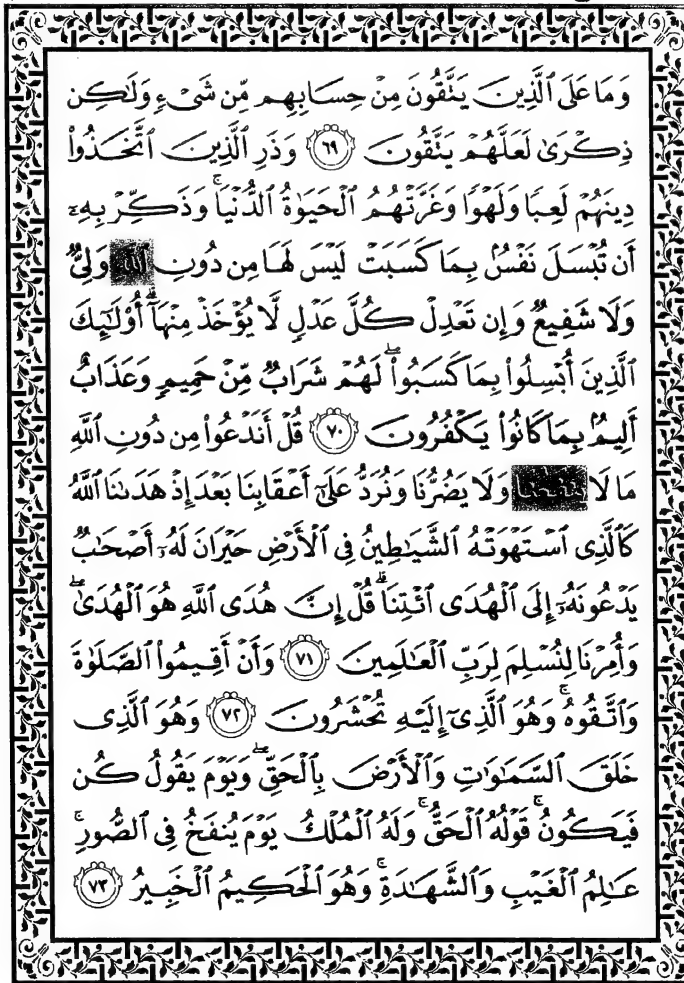 وَمَا عَلَى ٱلَّذِينَ يَتَّقُونَ مِنْ حِسَابِهِم مِّن شَىْءٍ وَلَٰكِن
ذِكْرَىٰ لَعَلَّهُمْ يَتَّقُونَ ۝٦٩ وَذَرِ ٱلَّذِينَ ٱتَّخَذُوا۟
دِينَهُمْ لَعِبًا وَلَهْوًا وَغَرَّتْهُمُ ٱلْحَيَوٰةُ ٱلدُّنْيَا ۚ وَذَكِّرْ بِهِۦٓ
أَن تُبْسَلَ نَفْسٌۢ بِمَا كَسَبَتْ لَيْسَ لَهَا مِن دُونِ ٱللَّهِ وَلِىٌّ
وَلَا شَفِيعٌ وَإِن تَعْدِلْ كُلَّ عَدْلٍ لَّا يُؤْخَذْ مِنْهَآ ۗ أُو۟لَٰٓئِكَ
ٱلَّذِينَ أُبْسِلُوا۟ بِمَا كَسَبُوا۟ ۖ لَهُمْ شَرَابٌ مِّنْ حَمِيمٍ وَعَذَابٌ
أَلِيمٌۢ بِمَا كَانُوا۟ يَكْفُرُونَ ۝٧٠ قُلْ أَنَدْعُوا۟ مِن دُونِ ٱللَّهِ
مَا لَا وَلَا يَضُرُّنَا وَنُرَدُّ عَلَىٰٓ أَعْقَابِنَا بَعْدَ إِذْ هَدَىٰنَا ٱللَّهُ
كَٱلَّذِى ٱسْتَهْوَتْهُ ٱلشَّيَٰطِينُ فِى ٱلْأَرْضِ حَيْرَانَ لَهُۥٓ أَصْحَٰبٌ
يَدْعُونَهُۥٓ إِلَى ٱلْهُدَى ٱئْتِنَا ۗ قُلْ إِنَّ هُدَى ٱللَّهِ هُوَ ٱلْهُدَىٰ ۖ
وَأُمِرْنَا لِنُسْلِمَ لِرَبِّ ٱلْعَٰلَمِينَ ۝٧١ وَأَنْ أَقِيمُوا۟ ٱلصَّلَوٰةَ
وَٱتَّقُوهُ ۚ وَهُوَ ٱلَّذِىٓ إِلَيْهِ تُحْشَرُونَ ۝٧٢ وَهُوَ ٱلَّذِى
خَلَقَ ٱلسَّمَٰوَٰتِ وَٱلْأَرْضَ بِٱلْحَقِّ ۖ وَيَوْمَ يَقُولُ كُن
فَيَكُونُ ۚ قَوْلُهُ ٱلْحَقُّ ۚ وَلَهُ ٱلْمُلْكُ يَوْمَ يُنفَخُ فِى ٱلصُّورِ ۚ
عَٰلِمُ ٱلْغَيْبِ وَٱلشَّهَٰدَةِ ۚ وَهُوَ ٱلْحَكِيمُ ٱلْخَبِيرُ ۝٧٣